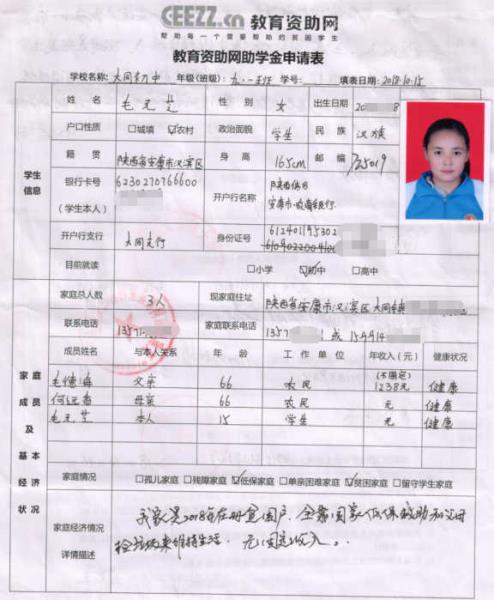 CEEZZ.cn 教育资助网
帮助每一个需要帮助的贫困学生
教育资助网助学金申请表
学校名称: 大同初中 年级(班级): 九.一班 学号: 填表日期: 2018.10.15
学生信息
姓名 毛元芝 性别 女 出生日期 20 8
户口性质 □城填 ☑农村 政治面貌 学生 民族 汉族
籍贯 陕西省安康市汉滨区 身高 165cm 邮编 725019
银行卡号 (学生本人) 6230270766600 开户行名称 陕西信合 安康市
开户行支行 大同支行 身份证号 612401195302
目前就读 □小学 ☑初中 □高中
家庭成员及基本经济状况
家庭总人数 3人 现家庭住址 陕西省安康市汉滨区大同镇
联系电话 1357 家庭联系电话 1357 1 或 159914
成员姓名 与本人关系 年龄 工作单位 年收入(元) 健康状况
毛德海 父亲 66 农民 (不固定) 1238元 健康
何远香 母亲 66 农民 元 健康
毛元芝 本人 15 学生 元 健康
家庭情况 □孤儿家庭 □残障家庭 ☑低保家庭 □单亲困难家庭 ☑贫困家庭 □留守学生家庭
家庭经济情况详情描述
我家是2018年在册贫困户,全靠国家低保救助和父母
捡垃圾来维持生活.无固定收入。